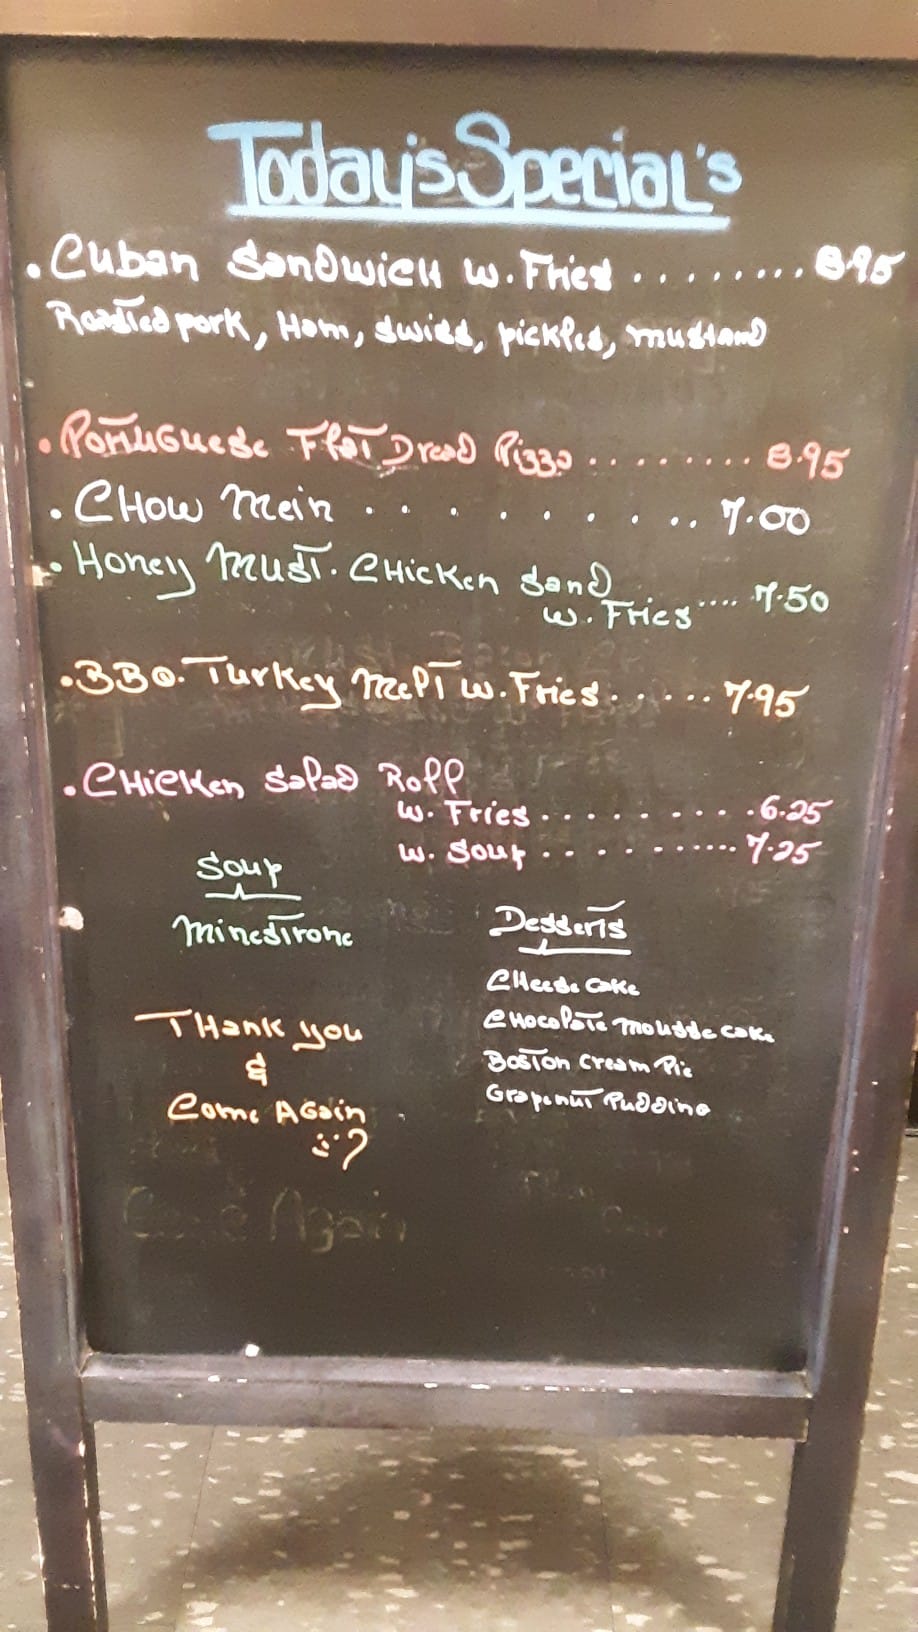 Today's Special's
. Cuban Sandwich w. Fries ........ 8.95
Roasted pork, Ham, swiss, pickles, mustard
. Portuguese Flat Bread Pizza ........ 8.95
. Chow Mein .......... 7.00
. Honey Must. Chicken Sand
w. Fries .... 7.50
. BBQ. Turkey Melt w. Fries ...... 7.95
. Chicken Salad Roll
w. Fries .......... 6.25
w. Soup .......... 7.25
Soup
Minestrone
Desserts
Cheese cake
Chocolate mousse cake
Boston Cream Pie
Grapenut Pudding
Thank you
&
Come Again
:)
Come Again